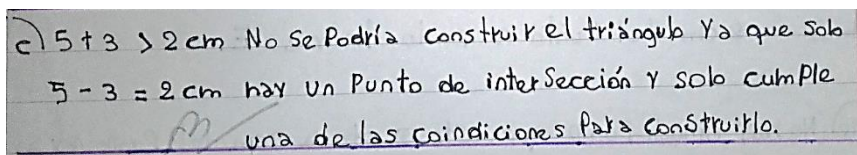 c) 5 + 3 > 2 cm No se Podría construir el triángulo Ya que solo
5 - 3 = 2 cm hay un Punto de interSección Y solo cumple
una de las coindiciones Para construirlo.